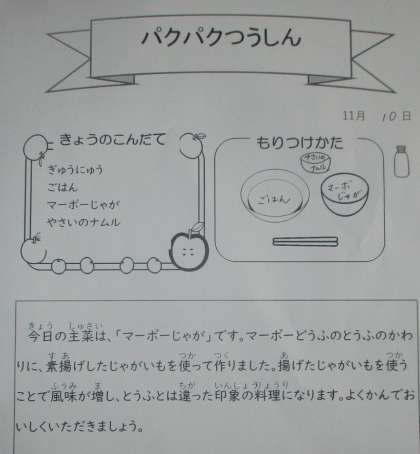 パクパクつうしん
11月 10日
きょうのこんだて
ぎゅうにゅう
ごはん
マーボーじゃが
やさいのナムル
もりつけかた
やさいの
ナムル
ごはん
マーボー
じゃが
今日の主菜は、「マーボーじゃが」です。マーボーどうふのとうふのかわ
りに、素揚げしたじゃがいもを使って作りました。揚げたじゃがいもを使う
ことで風味が増し、とうふとは違った印象の料理になります。よくかんでお
いしくいただきましょう。